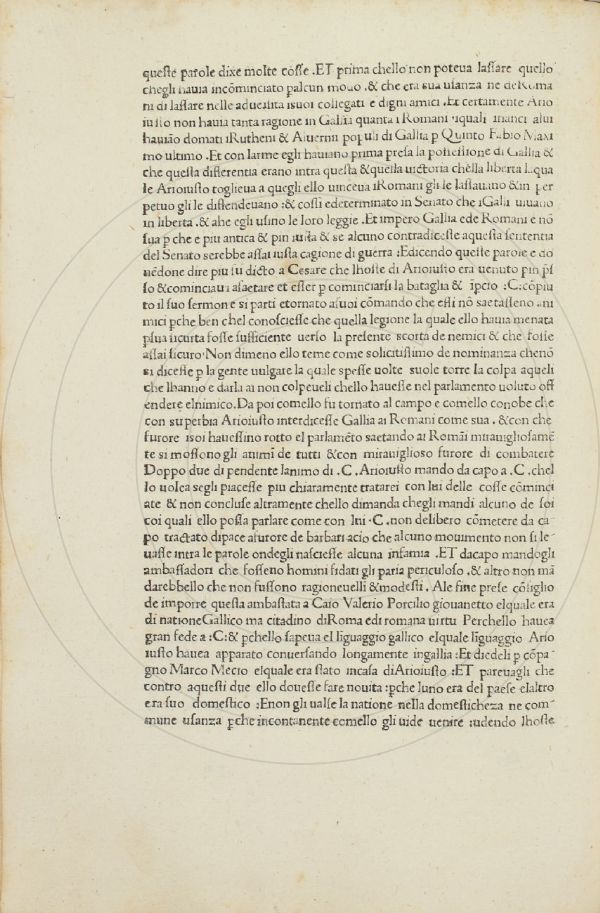 queste parole dixe molte cosse .ET prima chello non poteua lassare quello
chegli hauia incōminciato palcun modo .& che era sua usanza ne deRoma
ni di lassare nelle aduersita isuoi collegati e digni amici .Et certamente Ario
iusto non hauia tanta ragione in Gallia quanta i Romani iquali inanci alui
hauiāo domati iRutheni & Aiuernii populi di Gallia p Quinto Fabio Maxi
mo ultimo .Et con larme egli hauiano prima presa la possessione di Gallia &
che questa differentia erano intra questa &quella uictoria chella liberta Lqua
le Arioiusto toglieua a quegli ello uinceua iRomani gli le lassauano &in per
petuo gli le diffendeuano :& cossi edeterminato in Senato che iGalli uiuano
in liberta .& ahe egli usino le loro leggie .Et impero Gallia ede Romani e nō
sua p che e piu antica & piu iusta & se alcuno contradicesse aquesta sententia
del Senato serebbe assai iusta cagione di guerra :Edicendo queste parole e do
uēdone dire piu fu dicto a Cesare che lhoste di Arioiusto era uenuto piu pſ
so &cominciaua asaetare et esser p cominciarsi la bataglia & ipcio :C:cōpiu
to il suo sermone si parti etornato asuoi cōmando che essi nō saetasseno ani
mici pche ben chel conosciesse che quella legione la quale ello hauia menata
psua icurta fosse sufficiente uerso la presente scorta de nemici & che fosse
assai sicuro.Non dimeno ello teme come solicitissimo de nominanza chenō
si dicesse p la gente uulgare la quale spesse uolte suole torre la colpa aqueli
che lhanno e darla ai non colpeueli chello hauesse nel parlamento uoluto off
endere elnimico.Da poi comello fu tornato al campo e comello conobe che
con superbia Arioiusto interdicesse Gallia ai Romani come sua .&con che
furore isoi hauessino rotto el parlamēto saetando ai Romāi mirauigliosamē
te si mossono gli animi de tutti &con mirauiglioso furore di combatere
Doppo due di pendente lanimo di .C .Arioiusto mando da capo a .C .chel
lo uolea segli piacesse piu chiaramente tratarei con lui delle cosse cōminci
ate & non concluse altramente chello dimanda chegli mandi alcuno de soi
coi quali ello possa parlare come con lui .C .non delibero cōmetere da ca
po tractato dipace afurore de barbari acio che alcuno mouimento non si le
uasse intra le parole ondegli nasciesse alcuna infamia .ET dacapo mandogli
ambassadori che fosseno homini fidati gli paria periculoso .& altro non mā
darebbello che non fussono ragioneuelli &modesti .Ale fine prese cōsiglio
de imporre questa ambasiata a Caio Valerio Porcilio giouanetto elquale era
di nationeGallico ma citadino diRoma edi romana uirtu Perchello hauea
gran fede a :C:& pchello sapeua el liguaggio gallico elquale liguaggio Ario
iusto hauea apparato conuersando longamente ingallia :Et diedeli p cōpa
gno Marco Mecio elquale era stato incasa diArioiusto :ET pareuagli che
contro aquesti due ello douesse fare nouita :pche luno era del paese elaltro
era suo domestico :Enon gli ualse la natione nella domesticheza ne com
mune usanza pche incontanente comello gli uide uenire :udendo lhoste